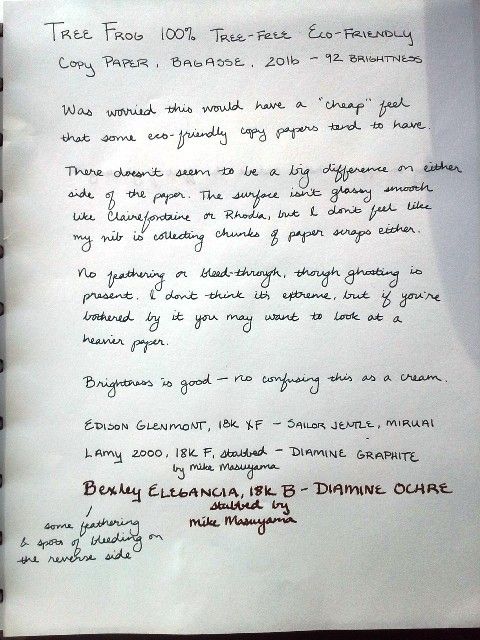 TREE FROG 100% TREE-FREE ECO-FRIENDLY
COPY PAPER, BAGASSE, 20lb - 92 BRIGHTNESS
Was worried this would have a "cheap" feel
that some eco-friendly copy papers tend to have.
There doesn't seem to be a big difference on either
side of the paper. The surface isn't glassy smooth
like Clairefontaine or Rhodia, but I don't feel like
my nib is collecting chunks of paper scraps either.
No feathering or bleed-through, though ghosting is
present. I don't think it's extreme, but if you're
bothered by it you may want to look at a
heavier paper.
Brightness is good - no confusing this as a cream.
EDISON GLENMONT, 18K XF - SAILOR JENTLE, MIRUAI
LAMY 2000, 18K F, stubbed - DIAMINE GRAPHITE
by Mike Masuyama
Bexley ELEGANCIA, 18K B - DIAMINE OCHRE
stubbed by
Mike Masuyama
some feathering
& spots of bleeding on
the reverse side